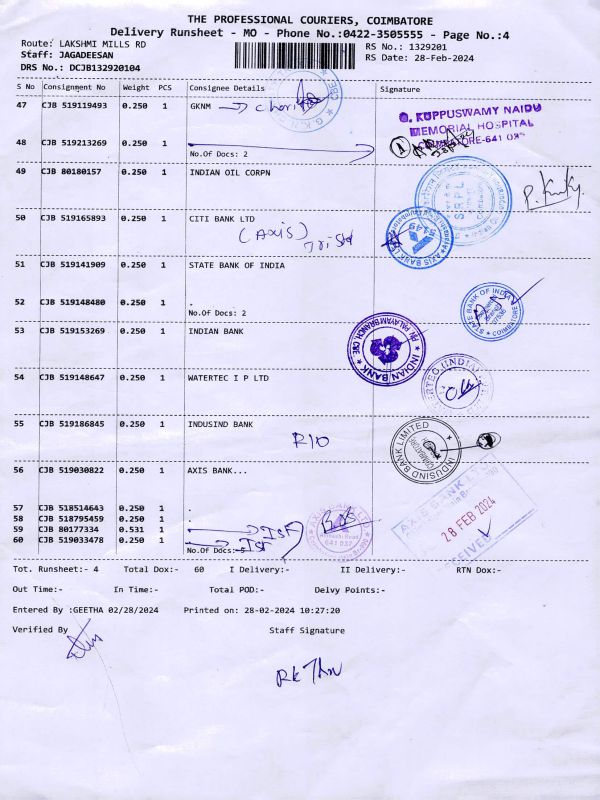 THE PROFESSIONAL COURIERS, COIMBATORE
Delivery Runsheet - MO - Phone No.:0422-3505555 - Page No.:4
Route: LAKSHMI MILLS RD
RS No.: 1329201
Staff: JAGADEESAN
RS Date: 28-Feb-2024
DRS No.: DCJB132920104
S No Consignment No Weight PCS Consignee Details Signature
47 CJB 519119493 0.250 1 GKNM
G. KUPPUSWAMY NAIDU
MEMORIAL HOSPITAL
COIMBATORE-641 037
48 CJB 519213269 0.250 1 .
No.Of Docs: 2
49 CJB 80180157 0.250 1 INDIAN OIL CORPN
50 CJB 519165893 0.250 1 CITI BANK LTD
(Axis)
51 CJB 519141909 0.250 1 STATE BANK OF INDIA
52 CJB 519148480 0.250 1 .
No.Of Docs: 2
STATE BANK OF INDIA
COIMBATORE
53 CJB 519153269 0.250 1 INDIAN BANK
P.N. PALAYAM BRANCH, CBE
INDIAN BANK
54 CJB 519148647 0.250 1 WATERTEC I P LTD
55 CJB 519186845 0.250 1 INDUSIND BANK
R10
INDUSIND BANK LIMITED
COIMBATORE
56 CJB 519030822 0.250 1 AXIS BANK...
57 CJB 518514643 0.250 1 .
58 CJB 518795459 0.250 1 .
59 CJB 80177334 0.531 1
60 CJB 519033478 0.250 1
No.Of Docs:-5
AXIS BANK LTD
641 037
28 FEB 2024
Tot. Runsheet:- 4 Total Dox:- 60 I Delivery:- II Delivery:- RTN Dox:-
Out Time:- In Time:- Total POD:- Delvy Points:-
Entered By :GEETHA 02/28/2024 Printed on: 28-02-2024 10:27:20
Verified By Staff Signature